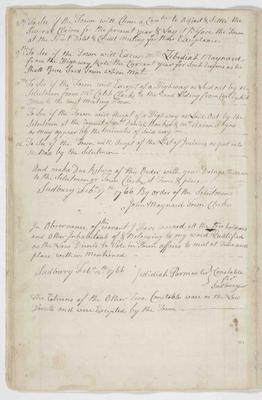 8ly To See if the Town will Chuse a Comtee to Adjust & Settle the
Several Claims for the present year & Lay it Before the Town
at the Next Meeting for their Acceptance
9ly To See if the Town will Excuse Zebediah Maynard
from the Highway Rate the Current year for Such Reasons as he
Shall Give Said Town when Met
To See if the Town will Accept of a Highway as Laid out by the
Selectmen
To See if the Town will Accept of a Highway as Laid Out by the
Selectmen at the
as may appear by the minutes of Said way
To See if the Town will Accept of the List of Jurors as put into
the Box by the Selectmen
And make Due Return of this Order with your Doings thereon
to the Selectmen or Town Clerk at Time & place
Sudbury Feby 17th 1766 By order of the Selectmen
John Maynard Town Clerke
In Observance of the warrant I have warned all the Freeholders
and other Inhabitants of & Belonging to my ward Qualified
as the Law Directs to Vote in Town affairs to meet at Time and
place within Mentioned
Sudbury Feby 1766 Jedidiah Parmenter Constable
of
Sudbury
The Returns of the Other Two Constables ware as the Law
Directs and were Excepted by the Town